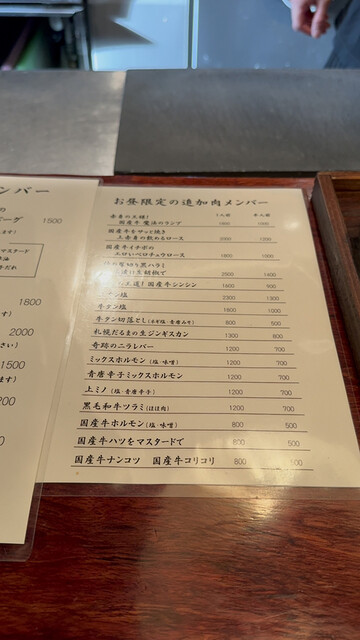 ンバー
1500
マスタード
1800
2000
1500
200
お昼限定の追加肉メンバー
赤身の王様!
国産牛 魔法のランプ
国産牛をサッと焼き
上赤身の飲めるロース 2000 1200
国産牛イチボの
エロいペロチュウロース
厚切り黒ハラミ
胡椒で 2500 1400
王道!国産牛シンシン 1600 900
タン塩 2300 1300
牛タン塩 1800 1000
牛タン切落とし(ネギ塩・青唐みそ) 800 500
札幌だるまの生ジンギスカン 1300 800
奇跡のニラレバー 1200 700
ミックスホルモン(塩・味噌) 1200 700
青唐辛子ミックスホルモン 1200 700
上ミノ(塩・青唐辛子) 1200 700
黒毛和牛ツラミ(ほほ肉) 1200 700
国産牛ホルモン(塩・味噌) 800 500
国産牛ハツをマスタードで 800 500
国産牛ナンコツ 国産牛コリコリ 800 500